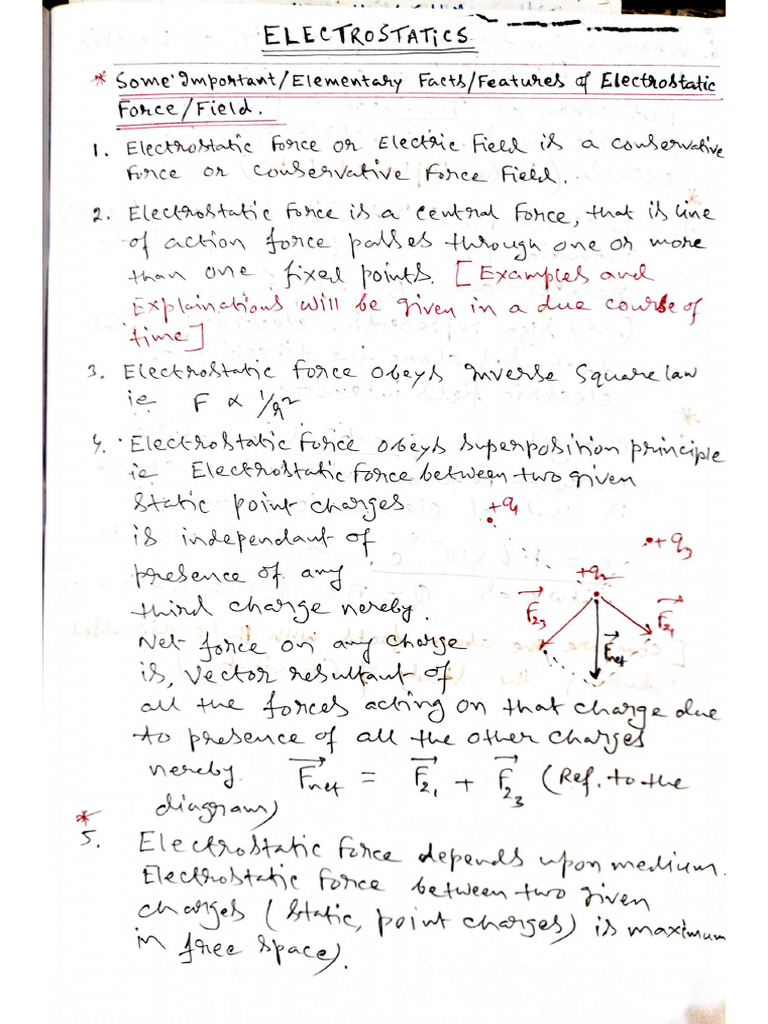 ELECTROSTATICS
* Some Important/Elementary Facts/Features of Electrostatic
Force/Field.
1. Electrostatic Force or Electric Field is a conservative
Force or conservative Force Field.
2. Electrostatic Force is a central Force, that is line
of action force passes through one or more
than one fixed points. [Examples and
Explainations will be given in a due course of
time]
3. Electrostatic Force obeys inverse square law
ie F ∝ 1/r²
4. Electrostatic force obeys superposition principle
ie Electrostatic force between two given
static point charges
is independant of
presence of any
third charge nereby.
Net force on any charge
is, vector resultant of
+q₁
+q₃
+q₂
F⃗₂₃
F⃗₂₁
F⃗net
all the forces acting on that charge due
to presence of all the other charges
nereby. F⃗net = F⃗₂₁ + F⃗₂₃ (Ref. to the
diagram)
* 5. Electrostatic Force depends upon medium.
Electrostatic Force between two given
charges (static, point charges) is maximum
in free space).